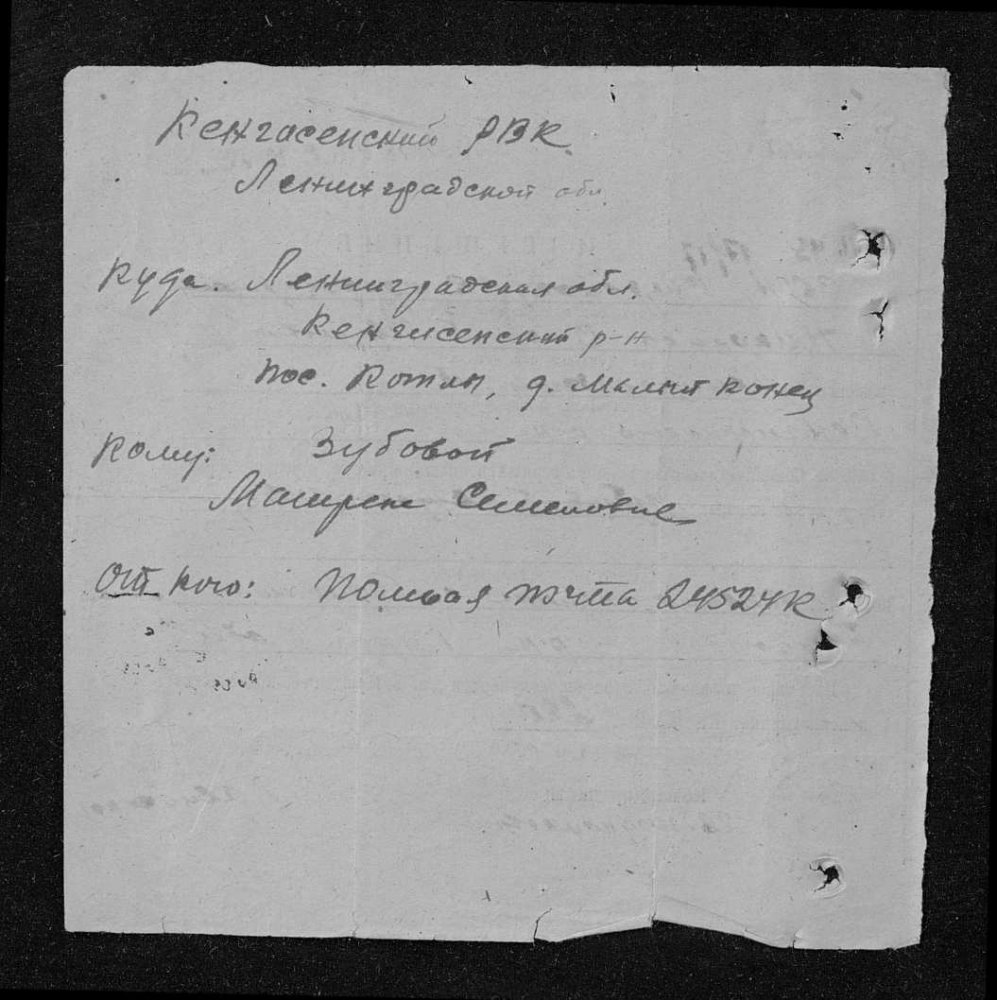 Кенгасепский РВК.
Ленинградской обл.
Куда. Ленинградская обл.
Кенгисепский р-н
пос. Котлы, д. Малый конец
Кому: Зубовой
Матрене Семеновне
От кого: Полевая почта 24524К